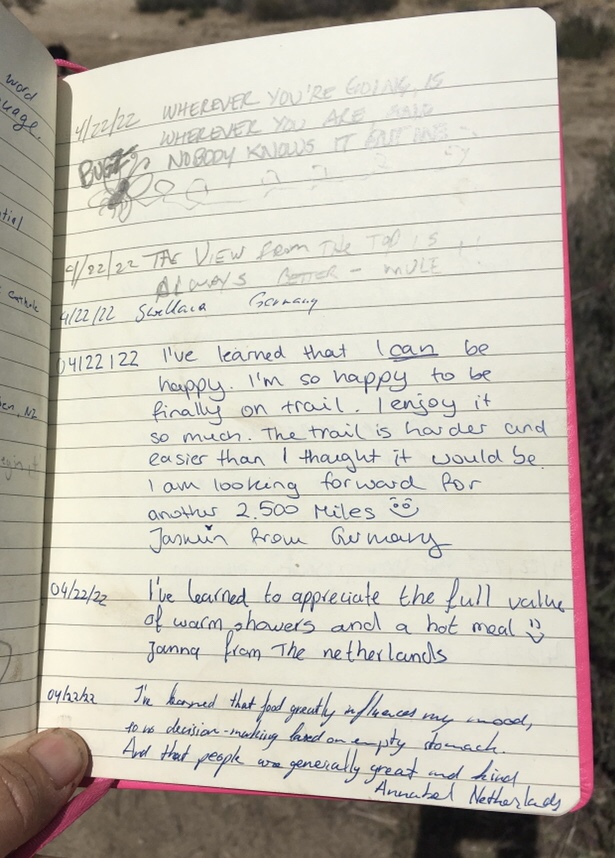 word
uage.
tial
en, NZ
4/22/22 WHEREVER YOU'RE GOING, IS
WHEREVER YOU ARE, AND
BUGZ NOBODY KNOWS IT BUT
4/22/22 THE VIEW FROM THE TOP IS
ALWAYS BETTER - MULE
4/22/22 Germany
04/22/22 I've learned that I can be
happy. I'm so happy to be
finally on trail. I enjoy it
so much. The trail is harder and
easier than I thought it would be.
I am looking forward for
another 2.500 Miles ☺
Jasmin from Germany
04/22/22 I've learned to appreciate the full value
of warm showers and a hot meal :)
Janna from The netherlands
04/22/22 I've learned that food greatly influences my mood,
to no decision-making based on empty stomach.
And that people are generally great and kind
Annabel Netherlands